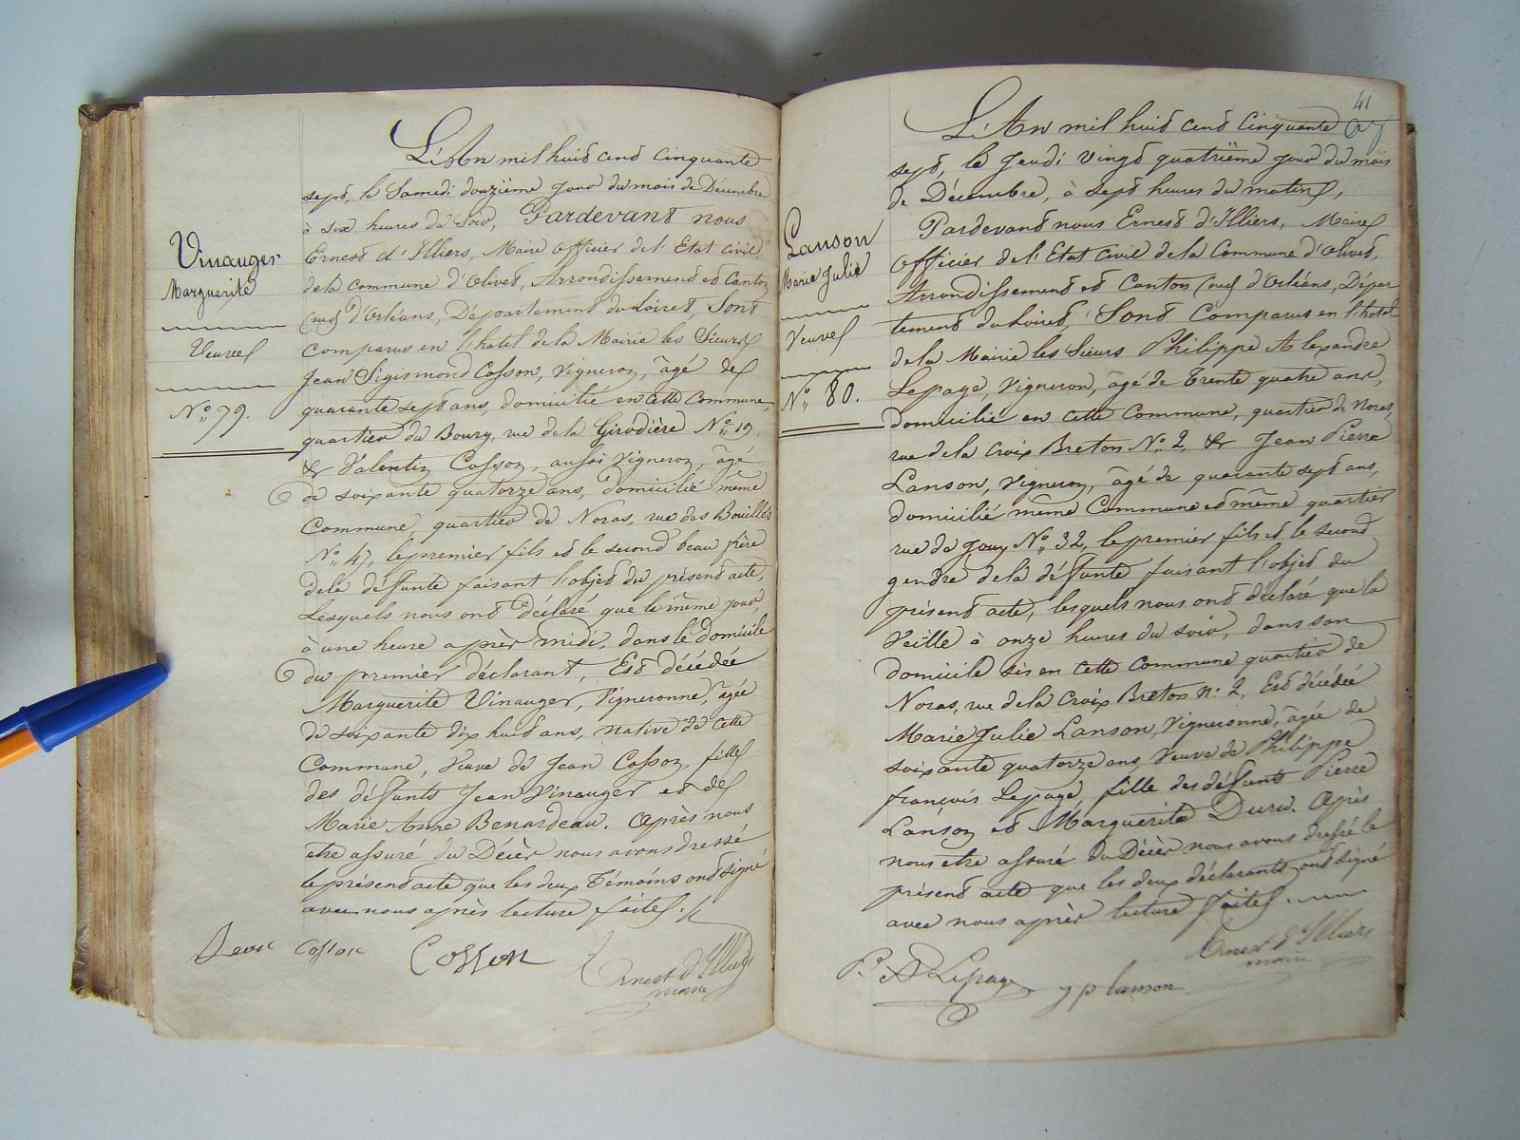 Vinauger
Marguerite
Veuve
No. 79.
L'An mil huit cent cinquante
sept, le Samedi douzième jour du mois de Décembre
à six heures du Soir, Pardevant nous
Ernest d'Illiers, Maire officier de l'Etat civil
de la commune d'Olivet, Arrondissement et Canton
(sud) d'Orléans, Département du Loiret, Sont
comparus en l'hotel de la Mairie les Sieurs
Jean Sigismond Cosson, Vigneron, âgé de
quarante sept ans, domicilié en cette Commune,
quartier du Bourg, rue de la Girodière No. 19,
& Valentin Cosson, aussi Vigneron, âgé
de soixante quatorze ans, domicilié même
Commune, quartier de Noras, rue des Bouillés
No. 47, le premier fils et le second beau frère
de la défunte faisant l'objet du présent acte,
Lesquels nous ont déclaré que le même jour
à une heure après midi, dans le domicile
du premier déclarant, Est décédée
Marguerite Vinauger, Vigneronne, âgée
de soixante dix huit ans, native de cette
Commune, Veuve de Jean Cosson, fille
des défunts Jean Vinauger et de
Marie Anne Benardeau. Après nous
etre assuré du Décès nous avons dressé
le présent acte que les deux Témoins ont signé
avec nous après lecture faite.
Cosson Cosson
Ernest d'Illiers
maire
41
Lanson
Marie Julie
Veuve
No. 80.
L'An mil huit cent Cinquante
sept, le Jeudi vingt quatrième jour du mois
de Décembre, à sept heures du matin,
Pardevant nous Ernest d'Illiers, Maire
officier de l'Etat civil de la Commune d'Olivet,
Arrondissement et Canton (sud) d'Orléans, Dépar
tement du Loiret, Sont Comparus en l'hotel
de la Mairie les Sieurs Philippe Alexandre
Lepage, Vigneron, âgé de trente quatre ans,
domicilié en cette Commune, quartier de Noras,
rue de la Croix Breton No. 2, & Jean Pierre
Lanson, Vigneron, âgé de quarante sept ans,
domicilié même Commune et même quartier
rue de Gouy No. 32, le premier fils et le second
gendre de la défunte faisant l'objet du
présent acte, lesquels nous ont déclaré que la
Veille à onze heures du soir, dans son
domicile sis en cette Commune quartier de
Noras, rue de la Croix Breton no. 2, Est décédée
Marie Julie Lanson, Vigneronne, âgée de
soixante quatorze ans Veuve de Philippe
françois Lepage, fille des défunts Pierre
Lanson et Marguerite Duru. Après
nous etre assuré du Décès nous avons dressé le
présent acte que les deux déclarants ont signé
avec nous après lecture faite.
P. A Lepage j p lanson
Ernest d'Illiers
maire